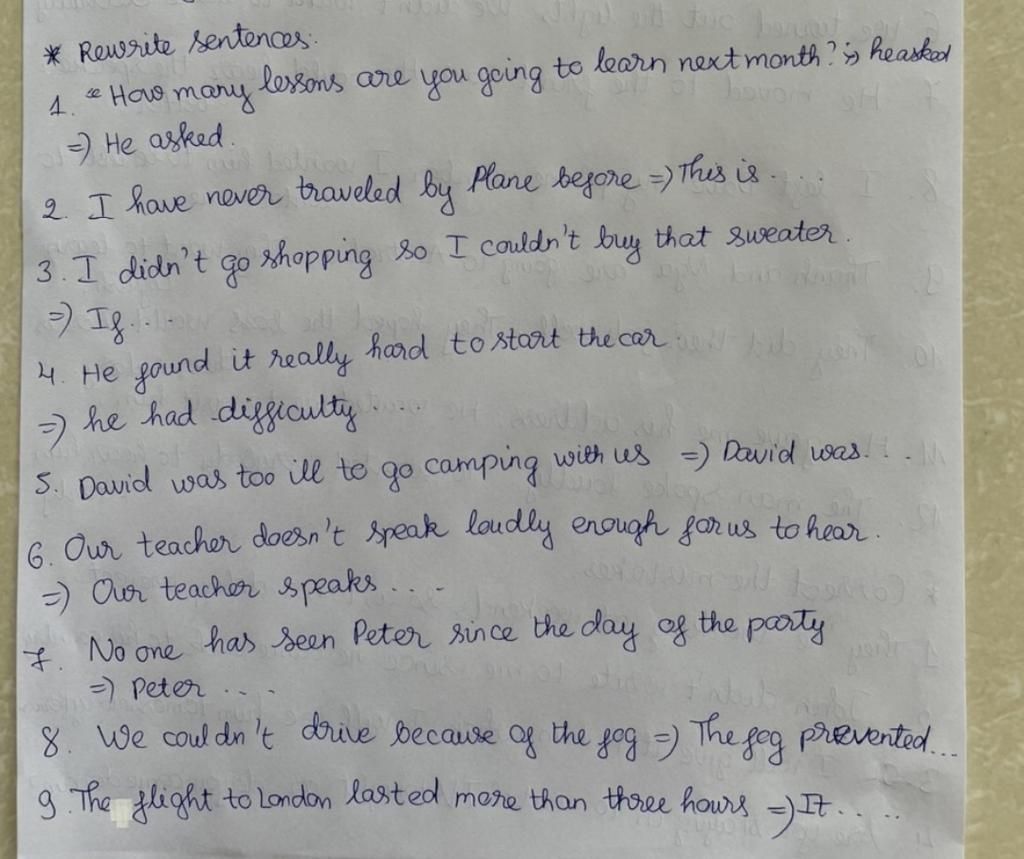 * Rewrite sentences:
1. " How many lessons are you going to learn next month?" he asked
=) He asked.
2. I have never traveled by Plane before =) This is....
3. I didn't go shopping so I couldn't buy that sweater.
=) If....
4. He found it really hard to start the car
=) he had difficulty....
5. David was too ill to go camping with us =) David was...
6. Our teacher doesn't speak loudly enough for us to hear.
=) Our teacher speaks....
7. No one has seen Peter since the day of the party
=) Peter ....
8. We couldn't drive because of the fog =) The fog prevented...
9. The flight to London lasted more than three hours =) It.....